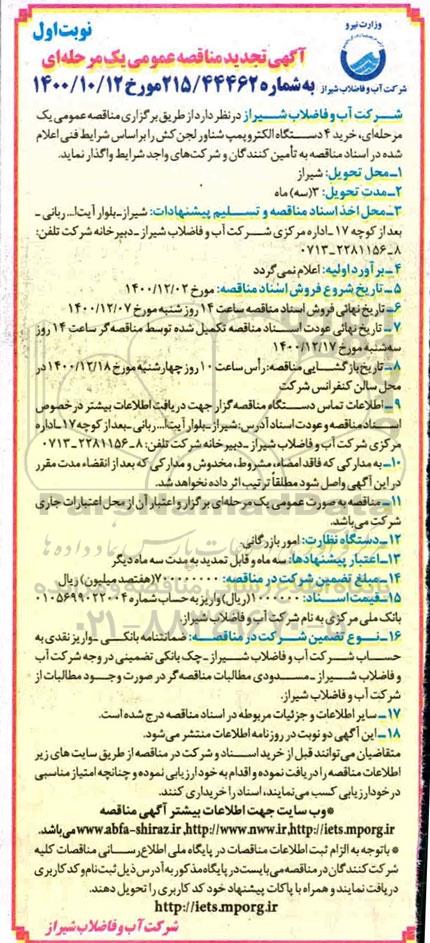 وزارت نیرو
شرکت آب و فاضلاب شیراز
نوبت اول
آگهی تجدید مناقصه عمومی یک مرحله‌ای
به شماره ۲۱۵/۴۴۴۶۲ مورخ ۱۴۰۰/۱۰/۱۲
شرکت آب و فاضلاب شیراز در نظر دارد از طریق برگزاری مناقصه عمومی یک
مرحله‌ای، خرید ۴ دستگاه الکتروپمپ شناور لجن کش را براساس شرایط فنی اعلام
شده در اسناد مناقصه به تأمین کنندگان و شرکت‌های واجد شرایط واگذار نماید.
۱ـ محل تحویل: شیراز
۲ـ مدت تحویل: ۳ (سه) ماه
۳ـ محل اخذ اسناد مناقصه و تسلیم پیشنهادات: شیراز ـ بلوار آیت‌ا... ربانی ـ
بعد از کوچه ۱۷ ـ اداره مرکزی شرکت آب و فاضلاب شیراز ـ دبیرخانه شرکت تلفن:
۸ ـ ۲۲۸۱۱۵۶ ـ ۰۷۱۳
۴ـ برآورد اولیه: اعلام نمی گردد
۵ـ تاریخ شروع فروش اسناد مناقصه: مورخ ۱۴۰۰/۱۲/۰۲
۶ـ تاریخ نهائی فروش اسناد مناقصه ساعت ۱۴ روز شنبه مورخ ۱۴۰۰/۱۲/۰۷
۷ـ تاریخ نهائی عودت اسناد مناقصه تکمیل شده توسط مناقصه گر ساعت ۱۴ روز
سه‌شنبه مورخ ۱۴۰۰/۱۲/۱۷
۸ـ تاریخ بازگشایی مناقصه: رأس ساعت ۱۰ روز چهارشنبه مورخ ۱۴۰۰/۱۲/۱۸ در
محل سالن کنفرانس شرکت
۹ـ اطلاعات تماس دستگاه مناقصه گزار جهت دریافت اطلاعات بیشتر در خصوص
اسناد مناقصه و عودت اسناد آدرس: شیراز ـ بلوار آیت‌ا... ربانی ـ بعد از کوچه ۱۷ ـ اداره
مرکزی شرکت آب و فاضلاب شیراز ـ دبیرخانه شرکت تلفن: ۸ ـ ۲۲۸۱۱۵۶ ـ ۰۷۱۳
۱۰ـ به مدارکی که فاقد امضاء، مشروط، مخدوش و مدارکی که بعد از انقضاء مدت مقرر
در این آگهی واصل شود مطلقاً ترتیب اثر داده نخواهد شد.
۱۱ـ مناقصه به صورت عمومی یک مرحله‌ای برگزار و اعتبار آن از محل اعتبارات جاری
شرکت می‌باشد.
۱۲ـ دستگاه نظارت: امور بازرگانی.
۱۳ـ اعتبار پیشنهادها: سه ماه و قابل تمدید به مدت سه ماه دیگر
۱۴ـ مبلغ تضمین شرکت در مناقصه: ۷۰۰۰۰۰۰۰۰ (هفتصد میلیون) ریال
۱۵ـ قیمت اسناد: ۱۰۰۰۰۰۰ (ریال) واریز به حساب شماره ۰۱۰۵۶۹۹۰۲۲۰۰۴
بانک ملی مرکزی به نام شرکت آب و فاضلاب شیراز.
۱۶ـ نوع تضمین شرکت در مناقصه: ضمانتنامه بانکی ـ واریز نقدی به
حساب شرکت آب و فاضلاب شیراز ـ چک بانکی تضمینی در وجه شرکت آب
و فاضلاب شیراز ـ مسدودی مطالبات مناقصه گر در صورت وجود مطالبات از
شرکت آب و فاضلاب شیراز.
۱۷ـ سایر اطلاعات و جزئیات مربوطه در اسناد مناقصه درج شده است.
۱۸ـ این آگهی دو نوبت در روزنامه اطلاعات منتشر می‌شود.
متقاضیان می‌توانند قبل از خرید اسناد و شرکت در مناقصه از طریق سایت های زیر
اطلاعات مناقصه را دریافت نموده و اقدام به خودارزیابی نموده و چنانچه امتیاز مناسبی
در خودارزیابی کسب می‌نمایند، اسناد را خریداری کنند.
* وب سایت جهت اطلاعات بیشتر آگهی مناقصه
www.abfa-shiraz.ir ,http://www.nww.ir,http://iets.mporg.ir می‌باشد.
* باتوجه به الزام ثبت اطلاعات مناقصات در پایگاه ملی اطلاع رسانی مناقصات کلیه
شرکت کنندگان در مناقصه می‌بایست در پایگاه مذکور به آدرس ذیل ثبت نام و کد کاربری
دریافت نمایند و همراه با پاکات پیشنهاد خود کد کاربری را تحویل دهند.
http://iets.mporg.ir
شرکت آب و فاضلاب شیراز